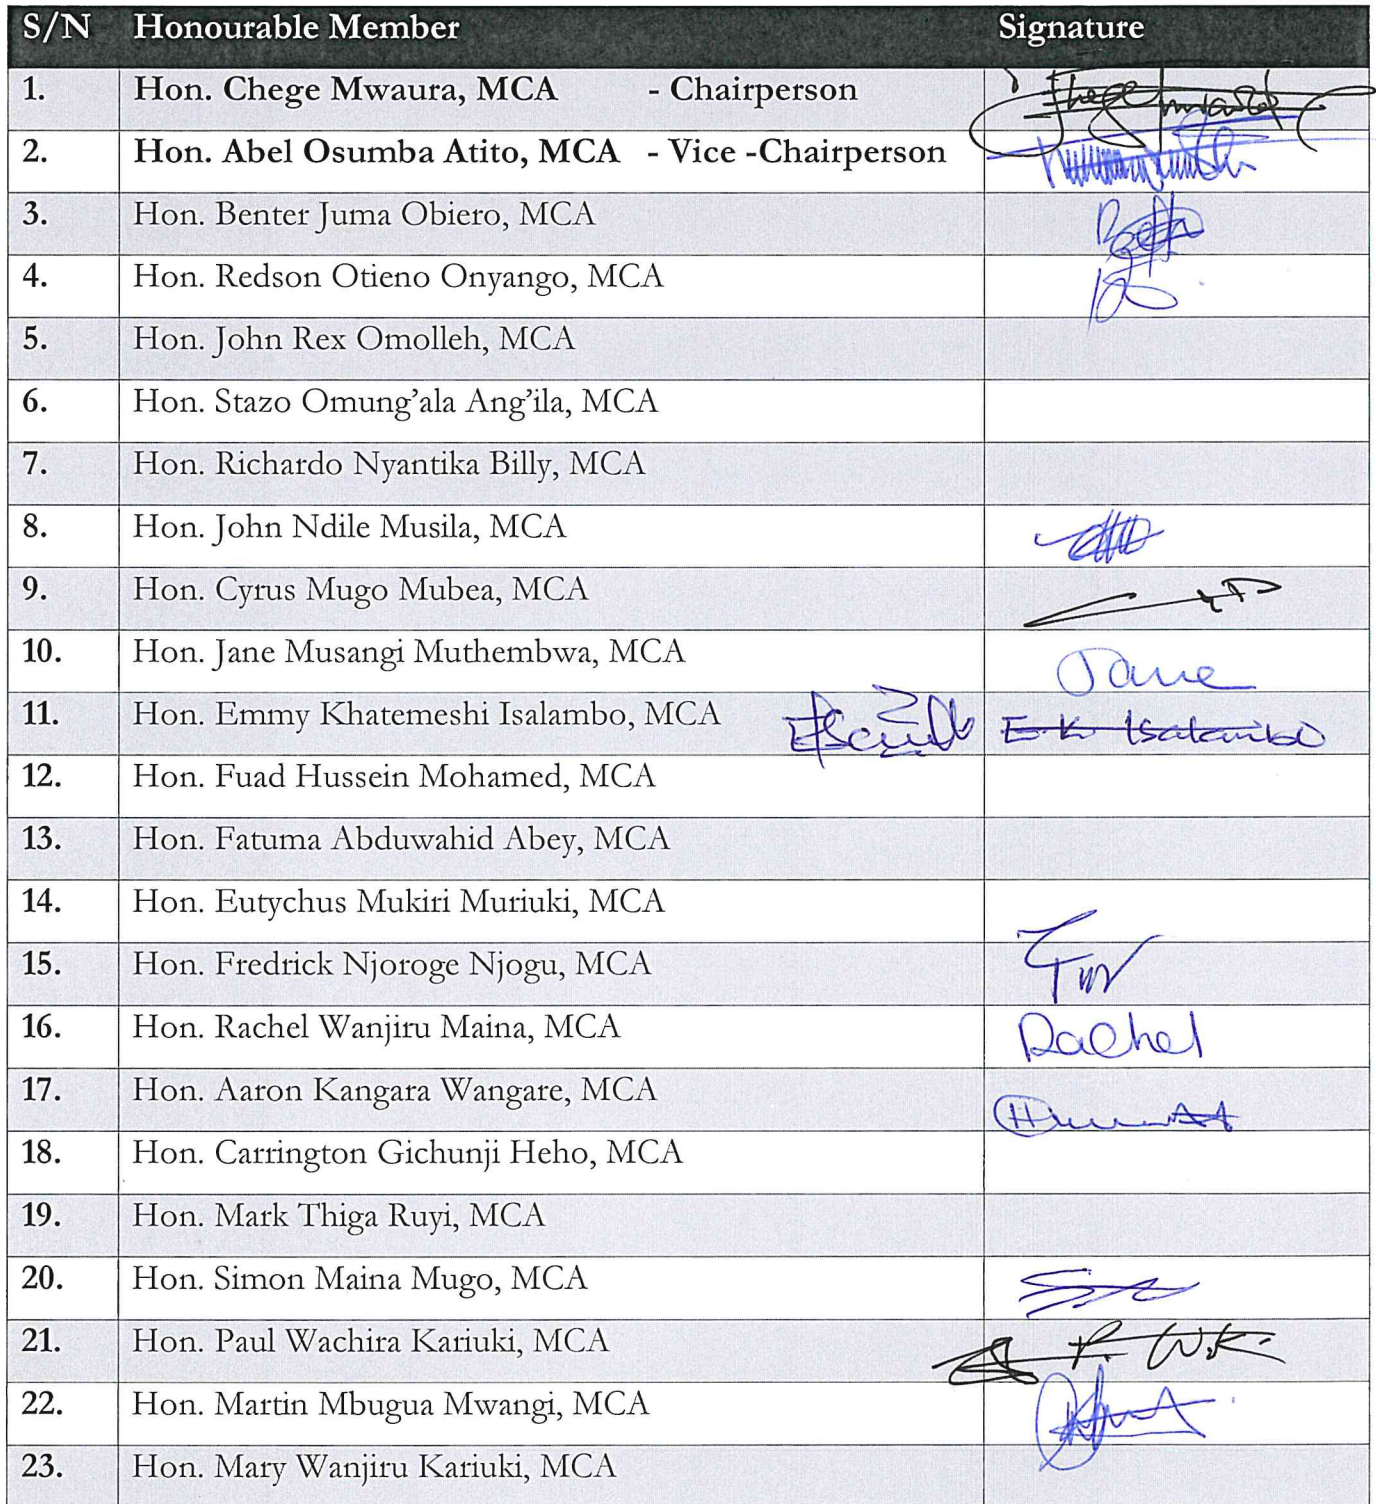 S/N Honourable Member Signature
1. Hon. Chege Mwaura, MCA - Chairperson Chege Mwaura
2. Hon. Abel Osumba Atito, MCA - Vice -Chairperson
3. Hon. Benter Juma Obiero, MCA
4. Hon. Redson Otieno Onyango, MCA
5. Hon. John Rex Omolleh, MCA
6. Hon. Stazo Omung’ala Ang’ila, MCA
7. Hon. Richardo Nyantika Billy, MCA
8. Hon. John Ndile Musila, MCA
9. Hon. Cyrus Mugo Mubea, MCA
10. Hon. Jane Musangi Muthembwa, MCA Jane
11. Hon. Emmy Khatemeshi Isalambo, MCA E.K. Isalambo
12. Hon. Fuad Hussein Mohamed, MCA
13. Hon. Fatuma Abduwahid Abey, MCA
14. Hon. Eutychus Mukiri Muriuki, MCA
15. Hon. Fredrick Njoroge Njogu, MCA
16. Hon. Rachel Wanjiru Maina, MCA Rachel
17. Hon. Aaron Kangara Wangare, MCA
18. Hon. Carrington Gichunji Heho, MCA
19. Hon. Mark Thiga Ruyi, MCA
20. Hon. Simon Maina Mugo, MCA
21. Hon. Paul Wachira Kariuki, MCA P. W.K.
22. Hon. Martin Mbugua Mwangi, MCA
23. Hon. Mary Wanjiru Kariuki, MCA